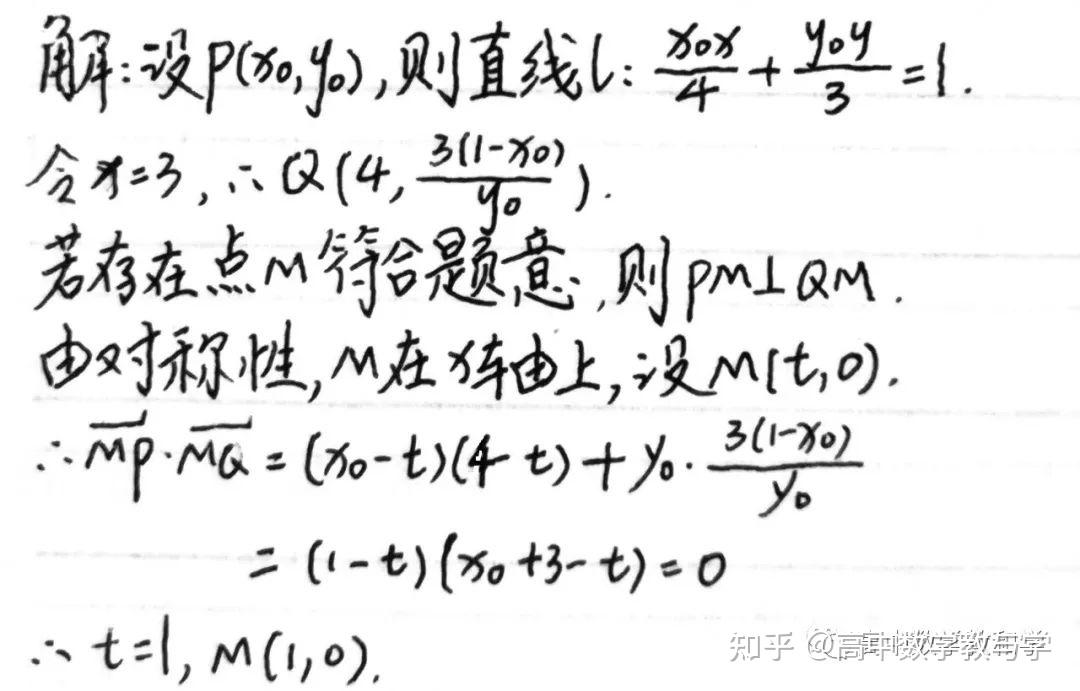 解:设P(x₀,y₀),则直线l: x₀x/4 + y₀y/3 = 1.
令x=3,∴Q(4, 3(1-x₀)/y₀).
若存在点M符合题意,则PM⊥QM.
由对称性,M在x轴上,设M(t,0).
∴MP·MQ = (x₀-t)(4-t) + y₀·3(1-x₀)/y₀
= (1-t)(x₀+3-t) = 0
∴t=1, M(1,0).
知乎 @高中数学教与学